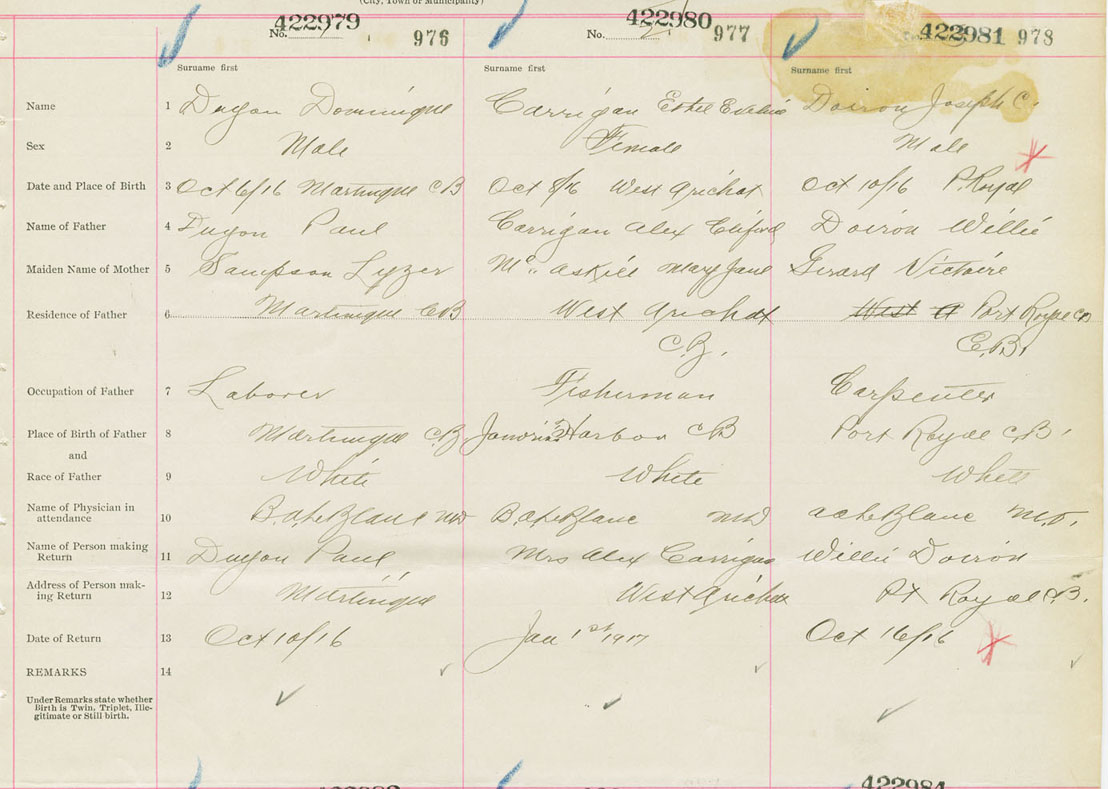 (City, Town or Municipality)
422979 422980 422981
No. 976 No. 977 978
Surname first Surname first Surname first
Name 1 Dugon Dominique Carrigan Ethel Eveline Doiron Joseph C.
Sex 2 Male Female Male
Date and Place of Birth 3 Oct 6/16 Martinique CB Oct 8/16 West Arichat Oct 10/16 P. Royal
Name of Father 4 Dugon Paul Carrigan Alex Cliford Doiron Willie
Maiden Name of Mother 5 Sampson Lyzer Mc askill Mary Jane Girard Victoire
Residence of Father 6 Martinique CB West Arichat Port Royal CB
C.B. C.B.
Occupation of Father 7 Laborer Fisherman Carpenter
Place of Birth of Father 8 Martinique C.B Janvrin Harbor CB Port Royal C.B.
and
Race of Father 9 White White White
Name of Physician in
attendance 10 B.A LeBlanc MD B.A LeBlanc MD LeBlanc M.D.
Name of Person making
Return 11 Dugon Paul Mrs Alex Carrigan Willie Doiron
Address of Person mak-
ing Return 12 Martinique West Arichat Pt Royal C.B.
Date of Return 13 Oct 10/16 Jan 1st 1917 Oct 16/16
REMARKS 14
Under Remarks state whether
Birth is Twin, Triplet, Ille-
gitimate or Still birth.
422984